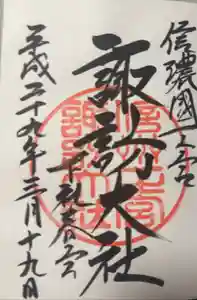 信濃國一之宮
諏訪大社
下社春宮
平成二十九年三月十九日